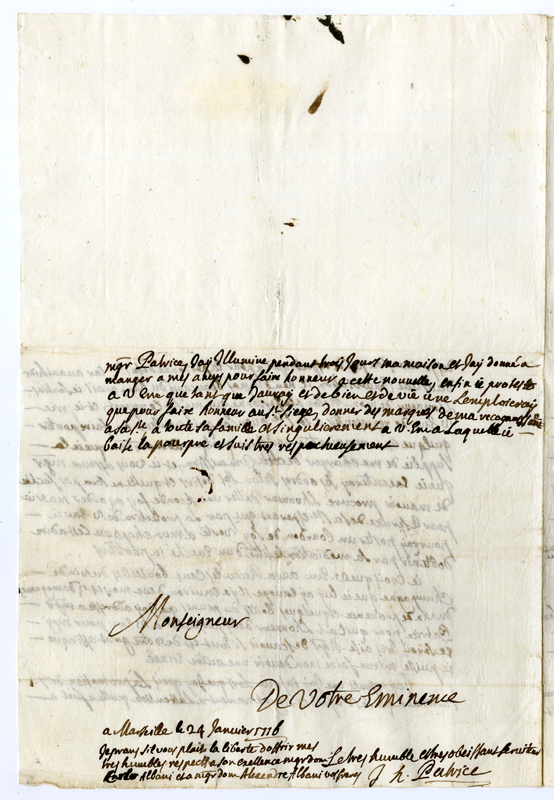 mgr Patrice, Jay Illumine pendant trois Jours ma maison et Jay donné a
manger a mes amys pour faire honneur a cette nouvelle, enfin ie proteste
a v Em que tant que Jauray et de bien et de vie ie ne Lemploieray
que pour faire honneur au St Siege, donner des marques de ma recognoissance
a sa Ste a toute sa famille et singulierement a v Em a Laquelle ie
baise la pourpre et suis tres respectueusement
Monseigneur
De Votre Eminence
a Marseille le 24 Janvier 1716
Je prans sil vous plait la liberte doffrir mes
tres humbles respects a son exellence mgr dom
Carlo Albani et a mgr dom Alexandre Albani vos freres
Le tres humble et tres obeissant serviteur
J h. Patrice